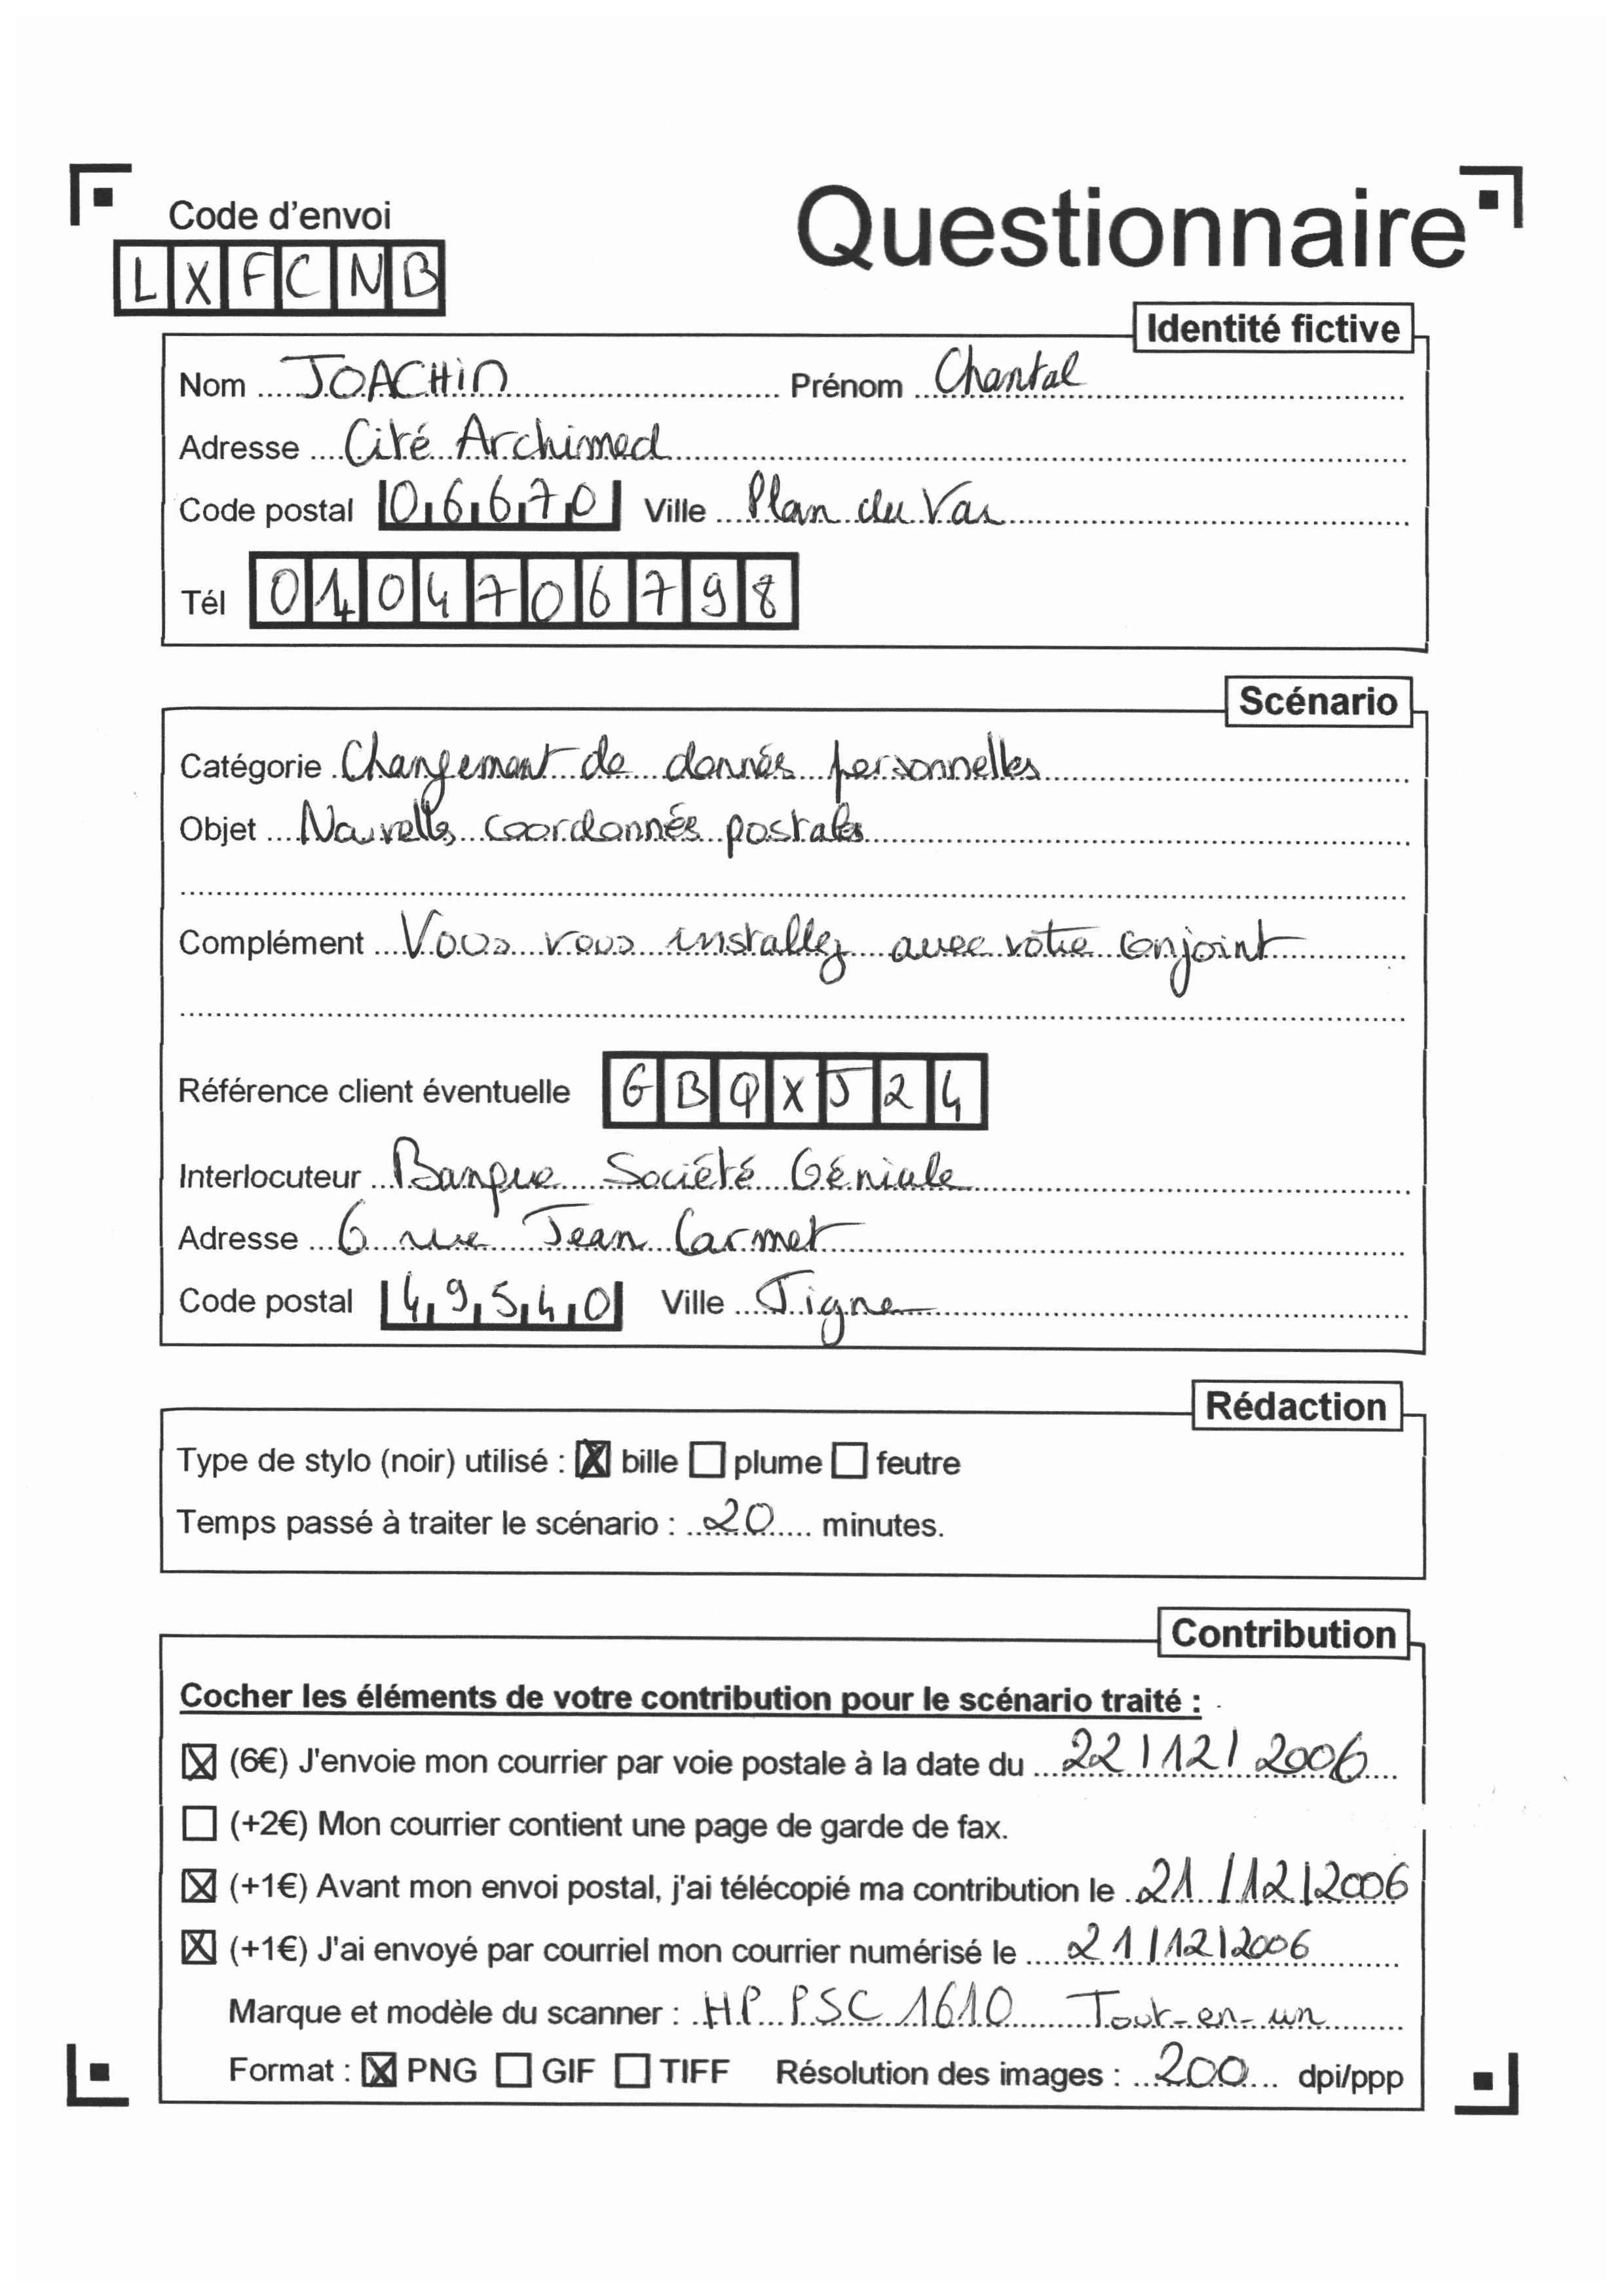 Code d'envoi
LXFCNB
Questionnaire
Identité fictive
Nom JOACHIM Prénom Chantal
Adresse Cité Archimed
Code postal 06670 Ville Plan du Var
Tél 0104706798
Scénario
Catégorie Changement de donnés personnelles
Objet Nouvelles coordonnés postales
Complément Vous vous installez avec votre conjoint
Référence client éventuelle GBQXJ24
Interlocuteur Banque Société Géniale
Adresse 6 rue Jean Carmet
Code postal 49540 Ville Tigne
Rédaction
Type de stylo (noir) utilisé : ☒ bille ☐ plume ☐ feutre
Temps passé à traiter le scénario : 20 minutes.
Contribution
Cocher les éléments de votre contribution pour le scénario traité :
☒ (6€) J'envoie mon courrier par voie postale à la date du 22/12/2006
☐ (+2€) Mon courrier contient une page de garde de fax.
☒ (+1€) Avant mon envoi postal, j'ai télécopié ma contribution le 21/12/2006
☒ (+1€) J'ai envoyé par courriel mon courrier numérisé le 21/12/2006
Marque et modèle du scanner : HP PSC 1610 Tout-en-un
Format : ☒ PNG ☐ GIF ☐ TIFF Résolution des images : 200 dpi/ppp